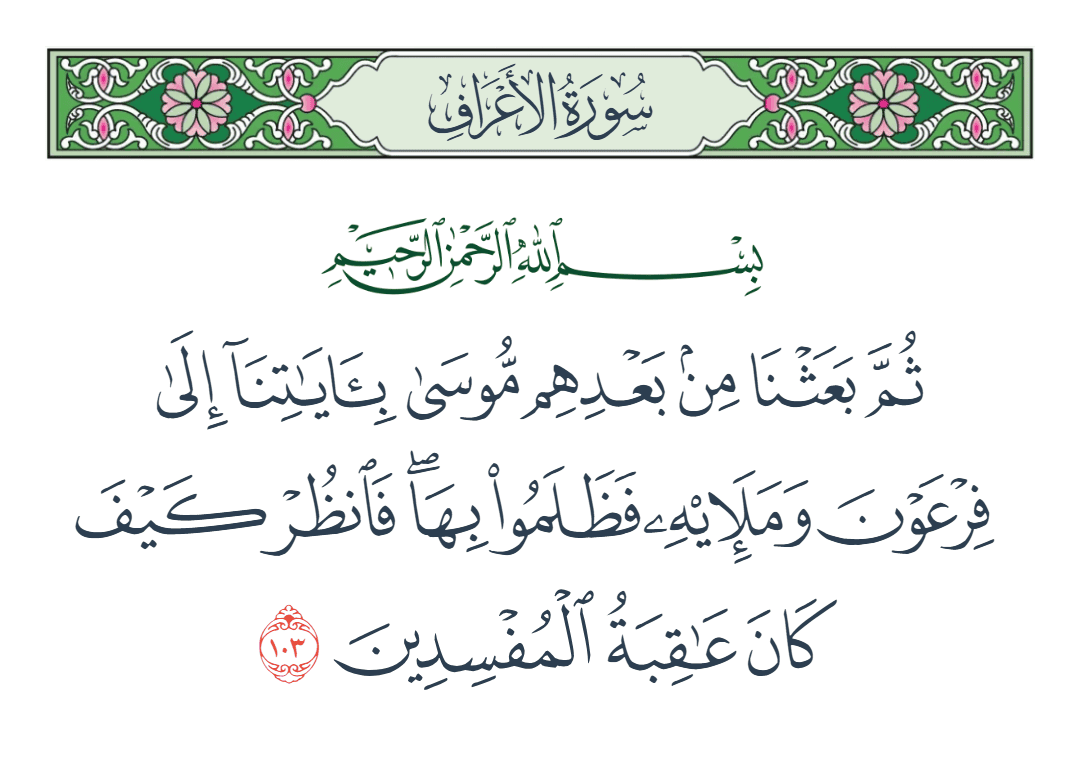 سُورَةُ الأَعْرَافِ
بِسْمِ ٱللَّهِ ٱلرَّحْمَٰنِ ٱلرَّحِيمِ
ثُمَّ بَعَثْنَا مِنۢ بَعْدِهِم مُّوسَىٰ بِـَٔايَٰتِنَآ إِلَىٰ
فِرْعَوْنَ وَمَلَإِي۟هِۦ فَظَلَمُوا۟ بِهَا ۖ فَٱنظُرْ كَيْفَ
كَانَ عَٰقِبَةُ ٱلْمُفْسِدِينَ ١٠٣